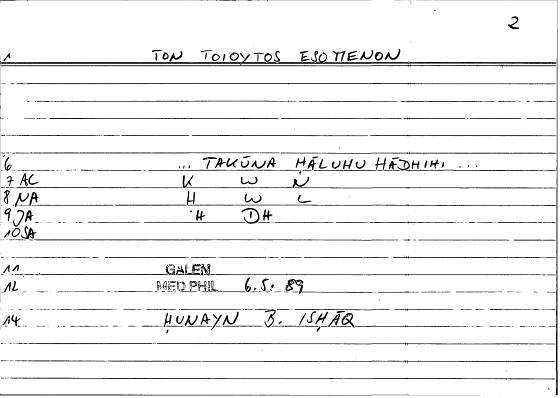 2
1 TON TOIOYTOS ESOMENON
6 ... TAKŪNA ḤĀLUHU HĀDHIHI ...
7 AC K W N
8 NA H W L
9 JA H DH
10 SA
11 GALEN
12 MED PHIL 6.5. 89
14 ḤUNAYN B. ISḤĀQ